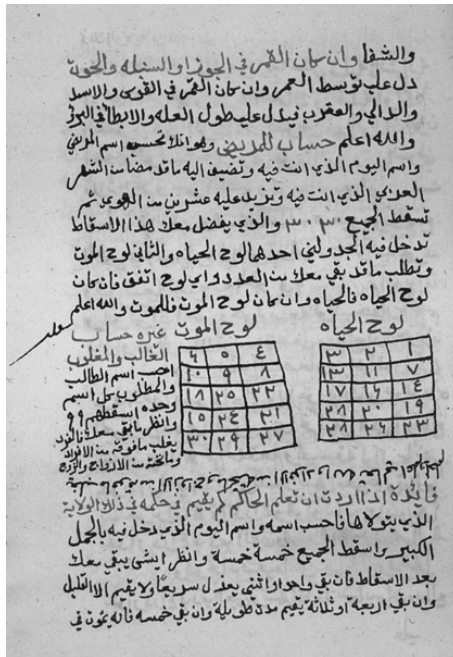 والشفا وان كان القمر في الجوزا او السنبله والحوت
دل علي توسط العمر وان كان القمر في القوس والاسد
والدالي والعقرب فيدل علي طول العله والابطا في البرو
والله اعلم حساب للمريض وهو انك تحسب اسم المريض
واسم اليوم الذي انت فيه وتضيف اليه ما قد مضا من الشهر
العربي الذي انت فيه وتزيد عليه عشرين من الهوي ثم
تسقط الجميع ٣٠ ٣٠ والذي يفضل معك هذا الاسقاط
تدخل فيه الجدولين احدهما لوح الحياه والثاني لوح الموت
وتطلب ما قد بقي معك من العدد واي لوح اتفق فان كان
لوح الحياه فالحياه وان كان لوح الموت فللموت والله اعلم
لوح الحياه
١ ٢ ٣
٧ ١١ ١٣
١٤ ١٦ ١٧
١٩ ٢٠ ٢٨
٢٣ ٢٦ ٢٨
لوح الموت
٤ ٥ ٦
٨ ٩ ١٠
٢٢ ٢٥ ١٨
٢١ ٢٤ ١٥
٢٧ ٢٩ ٣٠
غيره حساب
الغالب والمغلوب
احسب اسم الطالب
والمطلوب كل اسم
وحده اسقطهم ٩ ٩
وانظر ما بقي معك فالفرد
يغلب ما فوقه من الافراد
وما تحته من الازواج والزوج
فائدة اذا اردت ان تعلم الحاكم كم يقيم في حكمه في ذلك الولاية
الذي يتولاها فاحسب اسمه واسم اليوم الذي دخل فيه بالجمل
الكبير واسقط الجميع خمسة خمسة وانظر ايش يبقي معك
بعد الاسقاط فان بقي واحد او اثنين يعزل سريعا ولا يقيم الا القليل
وان بقي اربعة او ثلاثة يقيم مدة طويله وان بقي خمسه فانه يموت في